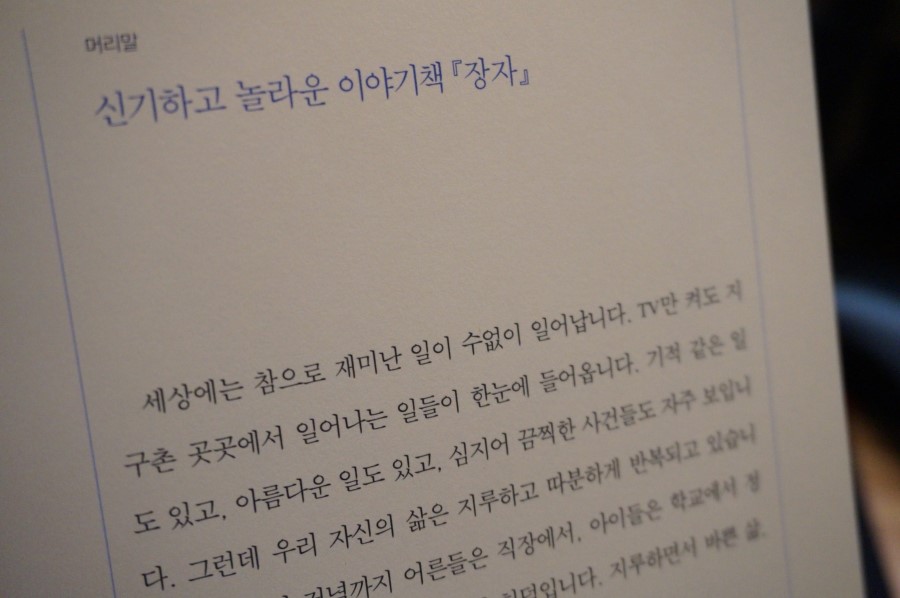 머리말
신기하고 놀라운 이야기책 『장자』
세상에는 참으로 재미난 일이 수없이 일어납니다. TV만 켜도 지
구촌 곳곳에서 일어나는 일들이 한눈에 들어옵니다. 기적 같은 일
도 있고, 아름다운 일도 있고, 심지어 끔찍한 사건들도 자주 보입니
다. 그런데 우리 자신의 삶은 지루하고 따분하게 반복되고 있습니
저녁까지 어른들은 직장에서, 아이들은 학교에서 정
지루하면서 바쁜 삶.